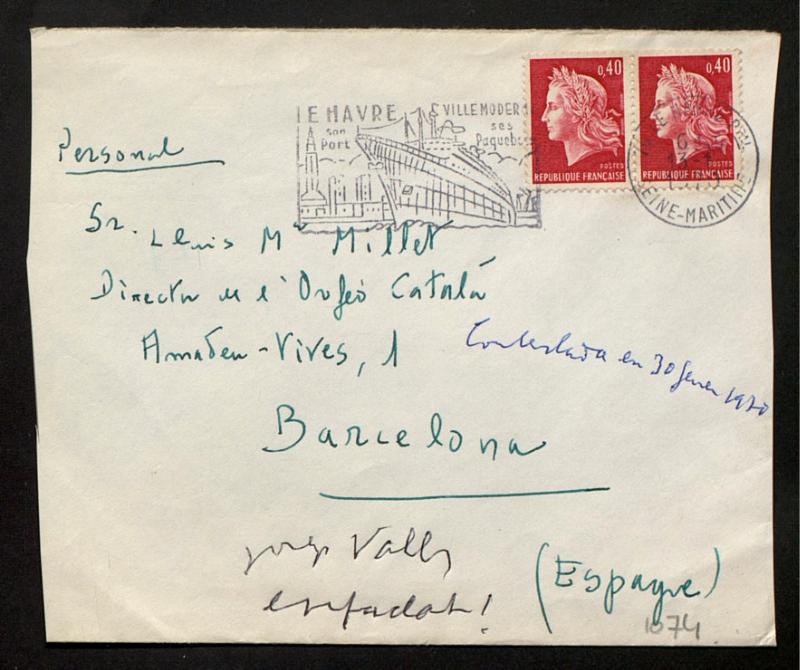 0,40
0,40
POSTES
POSTES
REPUBLIQUE FRANÇAISE
REPUBLIQUE FRANÇAISE
LE HAVRE VILLE MODER
son ses
Port Paquebots
13-1
SEINE-MARITIME
Personal
Sr. Lluis Mª Millet
Director de l'Orfeó Català
Amadeu-Vives, 1
Contestada en 30 gener 1970
Barcelona
Josep Valls
enfadat!
(Espagne)
1074